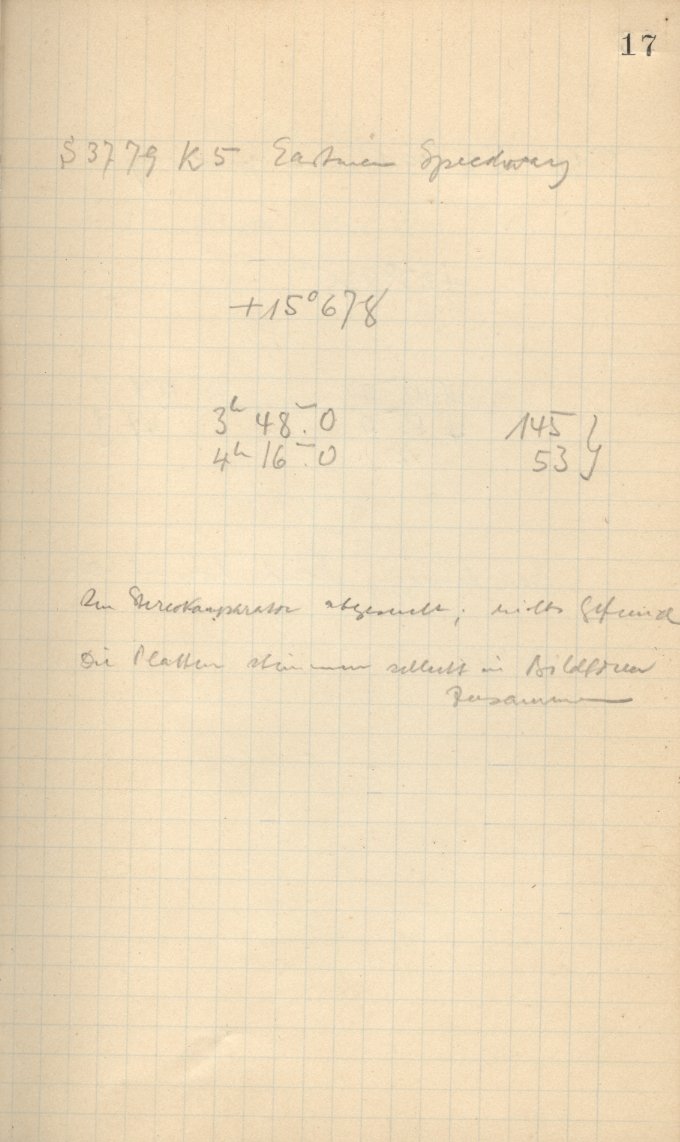 17
S 3779 K5 Eastman Speedway
+15°678
3h 48m.0 145 }
4h 16m.0 53
Im Stereokomparator abgesucht; nichts Gefund
Die Platten stimmen schlecht in Bildform
zusammen